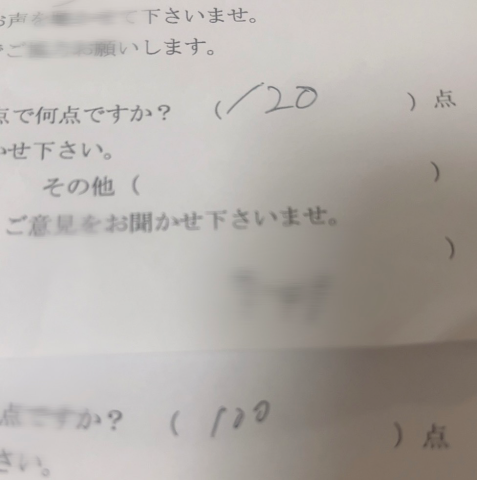 お声を聞かせて下さいませ。
ご協力お願いします。
点で何点ですか？ （120 ）点
かせ下さい。
その他（ ）
ご意見をお聞かせ下さいませ。
）
点ですか？ （100 ）点
さい。